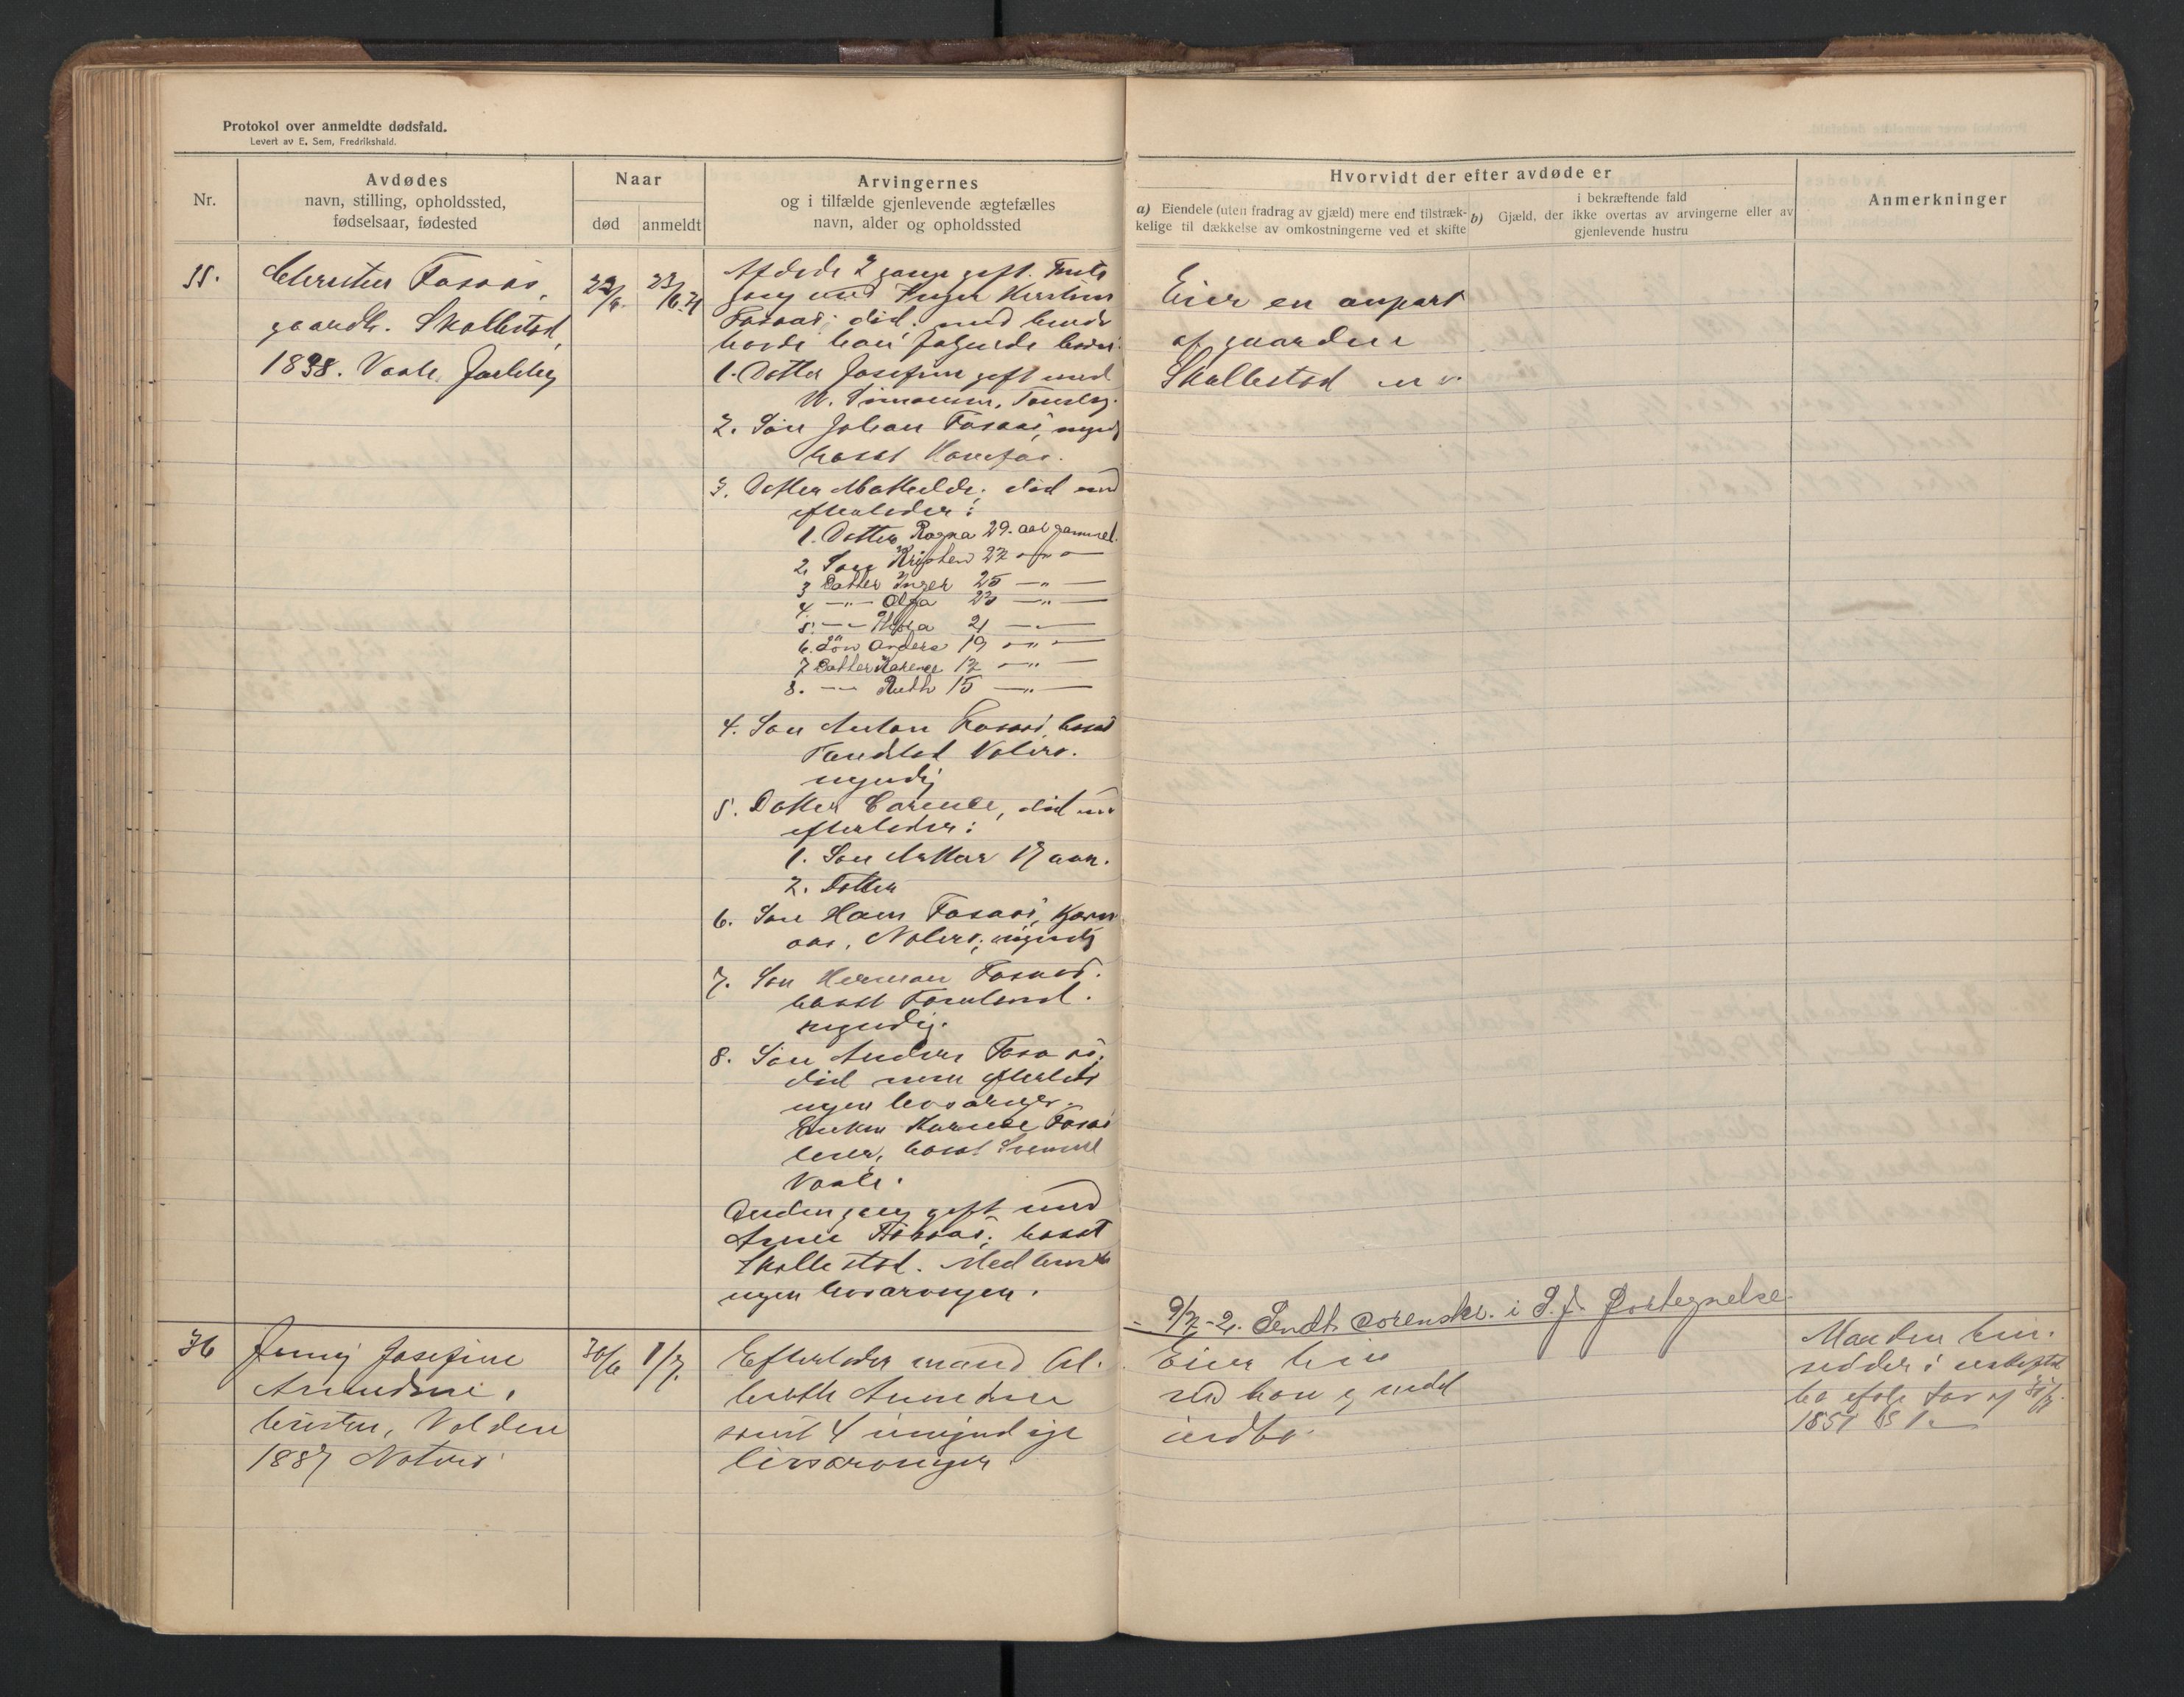 Protokol over anmeldte dødsfald.
Levert av E. Sem, Fredrikshald.
Nr.
Avdødes
navn, stilling, opholdssted,
fødselsaar, fødested
Naar
død
anmeldt
Arvingernes
og i tilfælde gjenlevende ægtefælles
navn, alder og opholdssted
Hvorvidt der efter avdøde er
a) Eiendele (uten fradrag av gjæld) mere end tilstræk-
kelige til dækkelse av omkostningerne ved et skifte
i bekræftende fald
b) Gjæld, der ikke overtas av arvingerne eller av
gjenlevende hustru
Anmerkninger
Fosaas,
gaardb. Skallestad,
1838. Vaale, Jarlsberg
23/6 21
Afdøde 2 gange gift. Første
gang med Inger Kirstine
Fosaas; død; med hende
havde han følgende børn:
1. Datter Josefine gift med
Simonsen, Tønsberg.
2. Søn Johan Fosaas, myndig
bosat
3. Datter Mathilde; død med
efterlader:
1. Datter Ragna 29. aar gammel.
2. Søn Kristen 27 -"-
3 Datter Inger 25 -"-
4 -"- Olga 23 -"-
5. -"- 21 -"-
6. Søn Anders 19 -"-
7 Datter Karense 17 -"-
8. -"- Ruth 15 -"-
4. Søn Anton Fosaas, bosat
Nøtterø.
myndig
5. Datter død
efterlader:
1. Søn 17 aar.
2. Datter
6. Søn Hans Fosaas,
Nøtterø; myndig
7. Søn Herman Fosaas.
bosat
myndig.
8. Søn Anders Fosaas,
død uden efterlade
ingen livsarvinger.
Enken Karense Fosaas
lever, bosat
Vaale.
Anden gang gift med
Fosaas; bosat
Skallestad. Med hende
ingen livsarvinger.
Eier en anpart
af gaarden
Skallestad
9/7-21. Sendt sorenskr. i S. J. Fortegnelse.
36
Jenny Josefine
Amundsen,
hustru, Volden
1887 Nøtterø
30/6
1/7.
Efterlader mand
Amundsen
samt 4 umyndige
livsarvinger.
Eier kun
indbo.
Manden hen-
sidder i uskiftet
bo efter lov af 31/7
1851 § 1